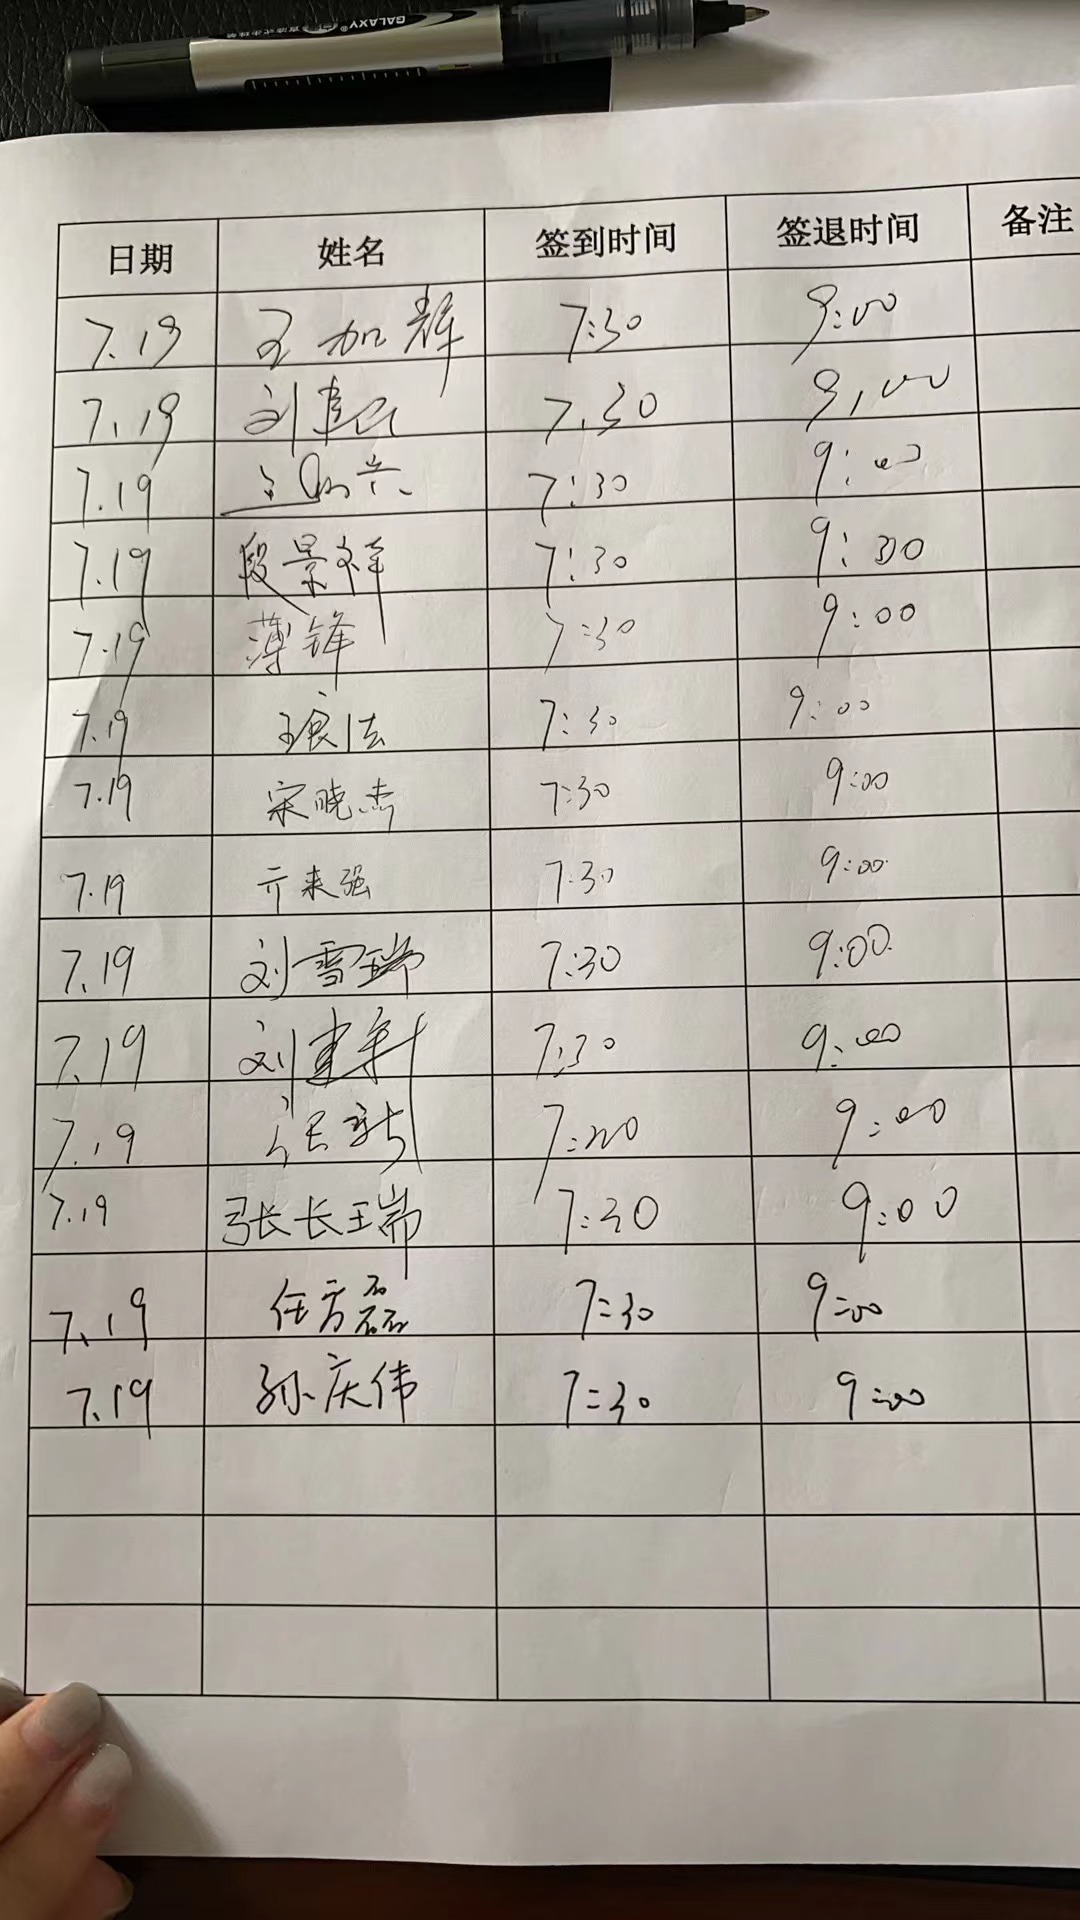 GALAXY
日期 姓名 签到时间 签退时间 备注
7.19 王加辉 7:30 9:00
7.19 刘 7.30 9:00
7.19 7:30 9:00
7.19 段景祥 7:30 9:00
7.19 薄锋 7:30 9:00
7.19 7:30 9:00
7.19 宋晓杰 7:30 9:00
7.19 亓来强 7:30 9:00
7.19 刘雪瑞 7:30 9:00
7.19 刘建军 7:30 9:00
7.19 张新 9:00
7.19 张长瑞 7:30 9:00
7.19 任方磊 7:30 9:00
7.19 孙庆伟 7:30 9:00